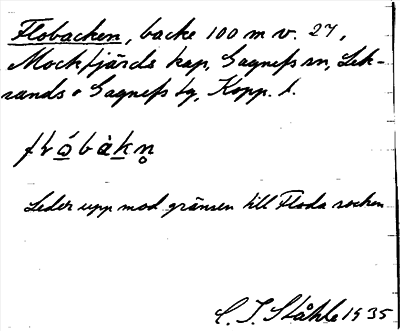 Flobacken, backe 100 m v. 27,
Mockfjärds kap, Gagnefs sn, Lek-
sands o Gagnefs tg, Kopp. l.
Leder upp mod gränsen till Floda socken
C. I. Ståhle 1935